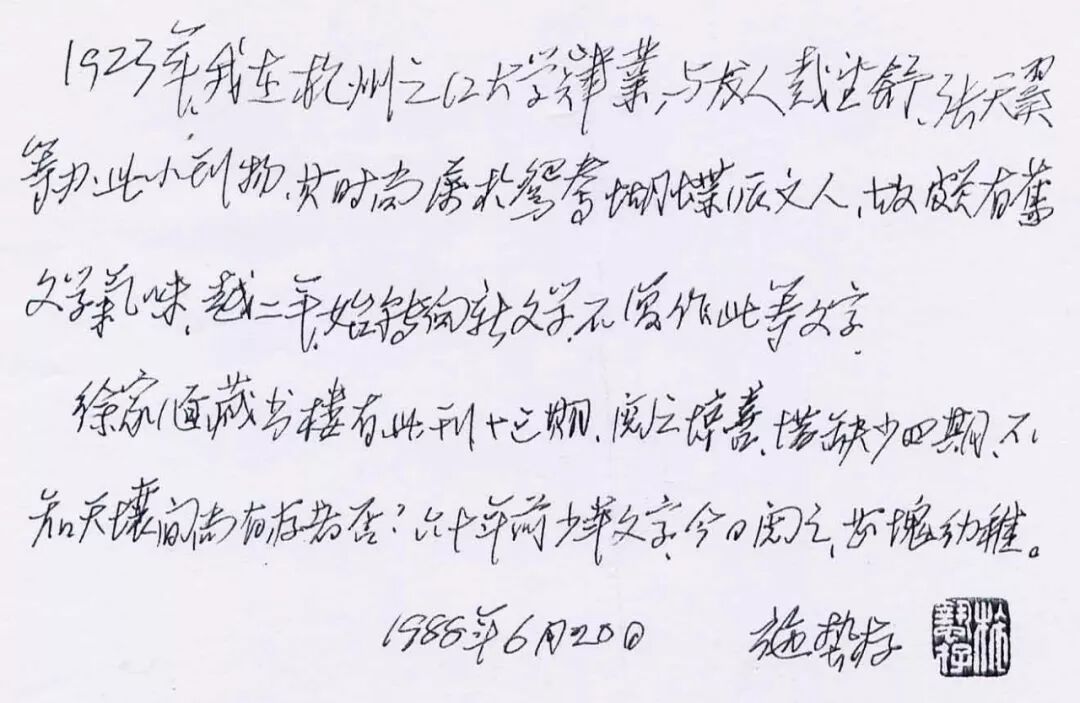 1923年，我在杭州之江大学肄業，与友人戴望舒、张天翼
等办此小刊物，其时尚屬於鴛鴦蝴蝶派文人，故頗有舊
文学氣味，越二年，始轉向新文学，不复作此等文字。
徐家匯藏书楼有此刊十三期，閲之惊喜，惜缺少四期，不
知天壤间尚有存者否？六十年前少年文字，今日閲之，甚愧幼稚。
1988年6月20日 施蛰存